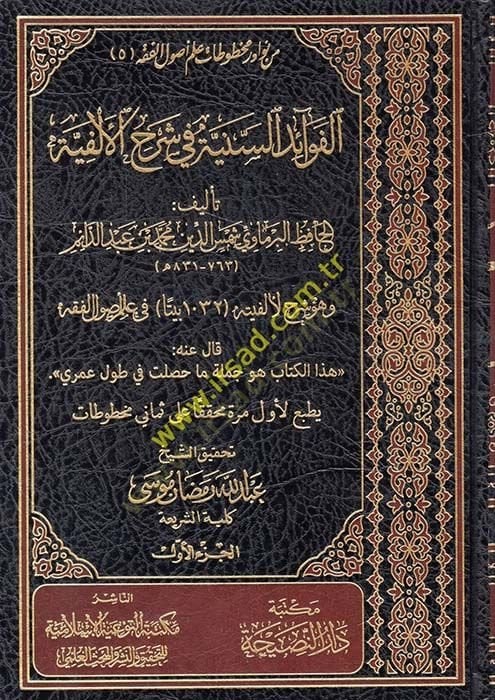 من نوادر مخطوطات علم أصول الفقه (٥)
الفوائد السنية في شرح الألفية
تأليف:
الحافظ البرماوي شمس الدين محمد بن عبد الدائم
(٧٦٣-٨٣١ه)
وهو شرح لألفيته (١٠٣٢ بيتا) في علم أصول الفقه
قال عنه:
«هذا الكتاب هو جملة ما حصلت في طول عمري».
يطبع لأول مرة محققا على ثماني مخطوطات
تحقيق الشيخ
عبد الله رمضان موسى
كلية الشريعة
الجزء الأول
مكتبة
دار النصيحة
الناشر
مكتبة التوعية الإسلامية
للتحقيق والنشر والبحث العلمي
www.irsad.com.tr